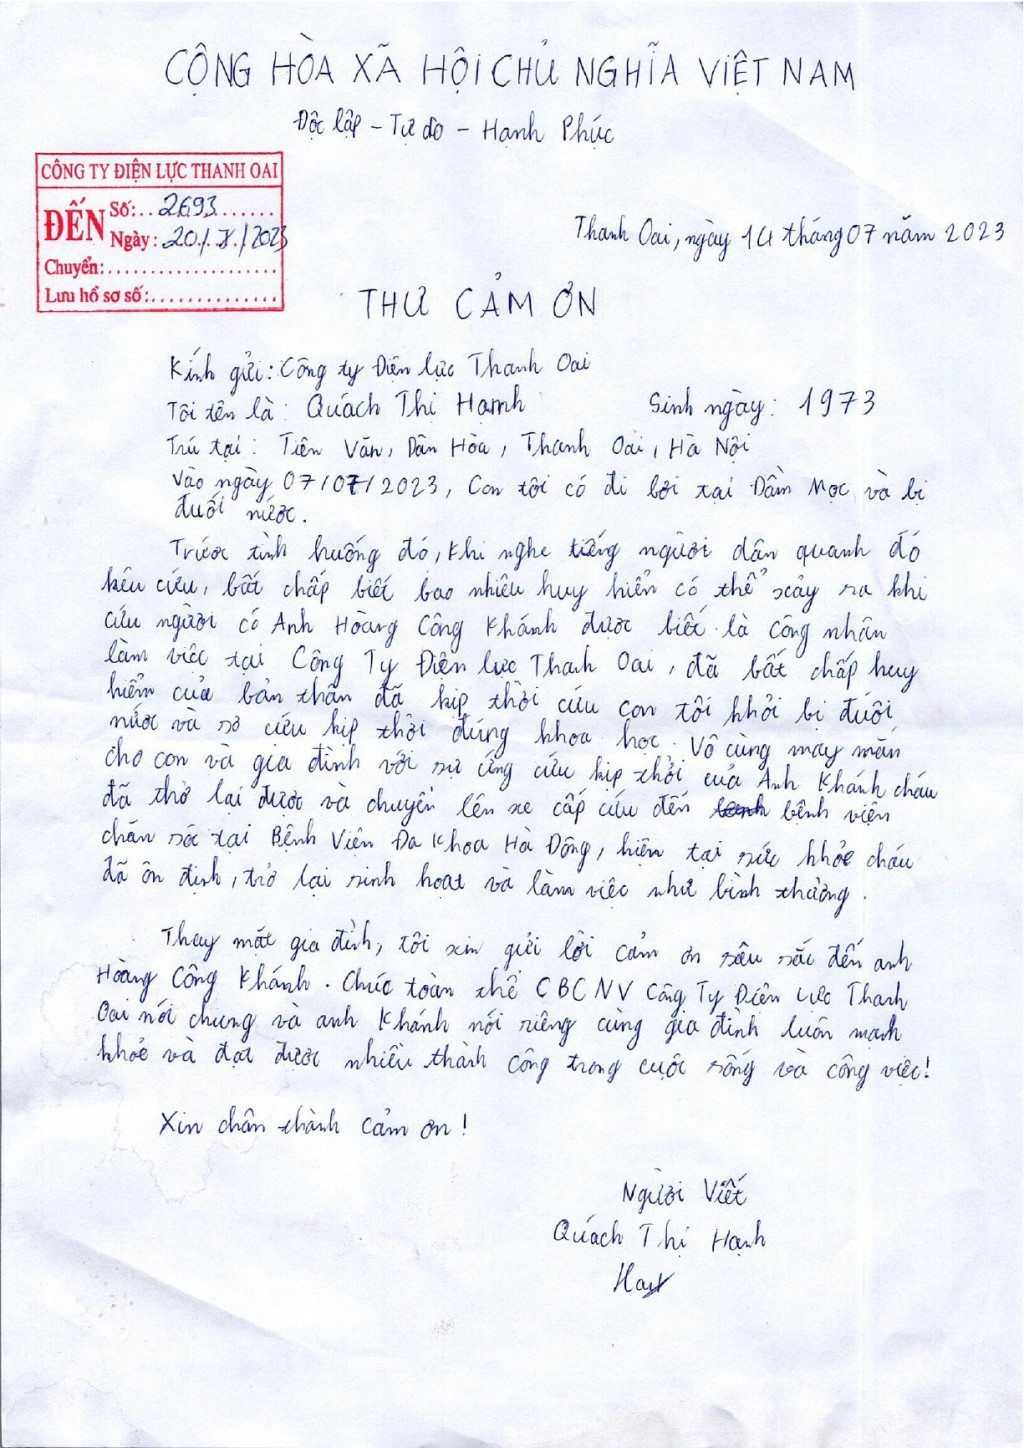 CỘNG HÒA XÃ HỘI CHỦ NGHĨA VIỆT NAM
Độc lập - Tự do - Hạnh Phúc
CÔNG TY ĐIỆN LỰC THANH OAI
ĐẾN Số: 2693
Ngày: 20/7/2023
Chuyển:
Lưu hồ sơ số:
Thanh Oai, ngày 14 tháng 07 năm 2023
THƯ CẢM ƠN
Kính gửi: Công ty Điện lực Thanh Oai
Tôi tên là: Quách Thị Hạnh Sinh ngày: 1973
Trú tại: Tiên Văn, Dân Hòa, Thanh Oai, Hà Nội
Vào ngày 07/07/2023, Con tôi có đi bơi tại Đầm Mọc và bị
đuối nước.
Trước tình huống đó, khi nghe tiếng người dân quanh đó
kêu cứu, bất chấp biết bao nhiêu huy hiển có thể xảy ra khi
cứu người có Anh Hoàng Công Khánh được biết là Công nhân
làm việc tại Công Ty Điện lực Thanh Oai, đã bất chấp huy
hiểm của bản thân đã kịp thời cứu con tôi khỏi bị đuối
nước và sơ cứu kịp thời đúng khoa học. Vô cùng may mắn
cho con và gia đình với sự ứng cứu kịp thời của Anh Khánh cháu
đã thở lại được và chuyển lên xe cấp cứu đến bệnh viện
chăn sóc tại Bệnh Viện Đa Khoa Hà Đông, hiện tại sức khỏe cháu
đã ổn định, trở lại sinh hoạt và làm việc như bình thường.
Thay mặt gia đình, tôi xin gửi lời cảm ơn sâu sắc đến anh
Hoàng Công Khánh. Chúc toàn thể CBCNV Công Ty Điện Lực Thanh
Oai nói chung và anh Khánh nói riêng cùng gia đình luôn mạnh
khỏe và đạt được nhiều thành công trong cuộc sống và công việc!
Xin chân thành cảm ơn!
Người Viết
Quách Thị Hạnh